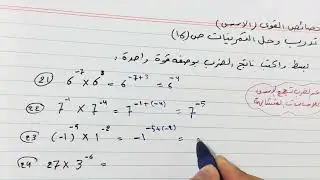 خصائص القوى (الأسس)
تدريب وحل التمرينات ص (16)
بسط واكتب ناتج الضرب بوصفه قوة واحدة :
21) 6⁻⁷ × 6³ = 6⁻⁷⁺³ = 6⁻⁴
22) 7⁻¹ × 7⁻⁴ = 7⁻¹⁺⁽⁻⁴⁾ = 7⁻⁵
عند الضرب نجمع
23) (-1)⁻⁵ × 1⁻² = -1⁻⁵⁺⁽⁻²⁾ =
24) 27 × 3⁻⁶ =